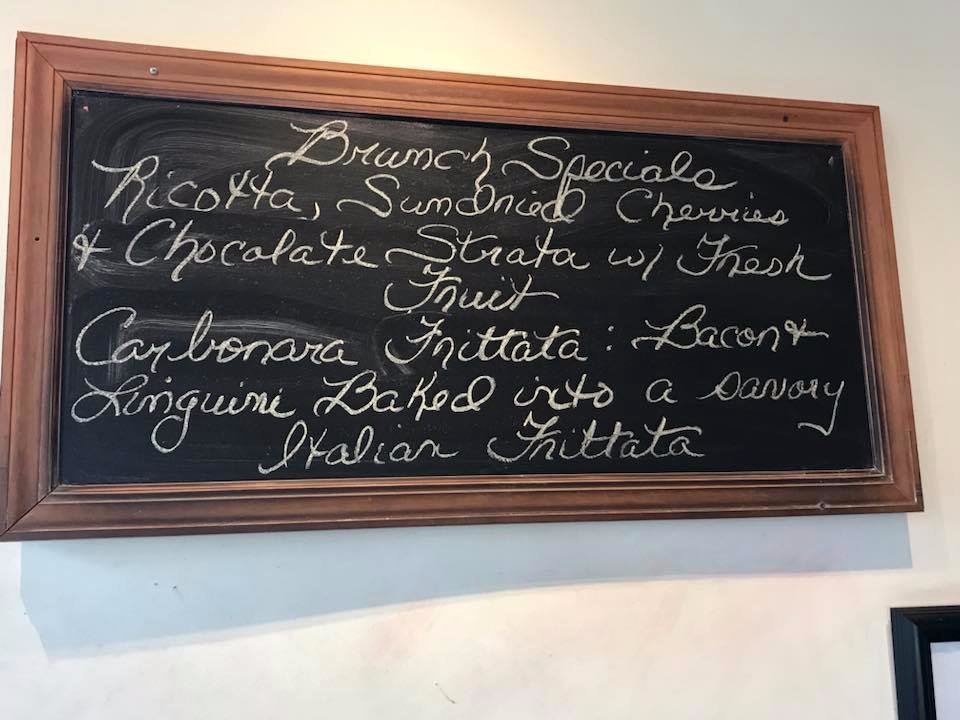 Brunch Specials
Ricotta, Sundried Cherries
& Chocolate Strata w/ Fresh
Fruit
Carbonara Frittata: Bacon &
Linguini Baked into a savory
Italian Frittata